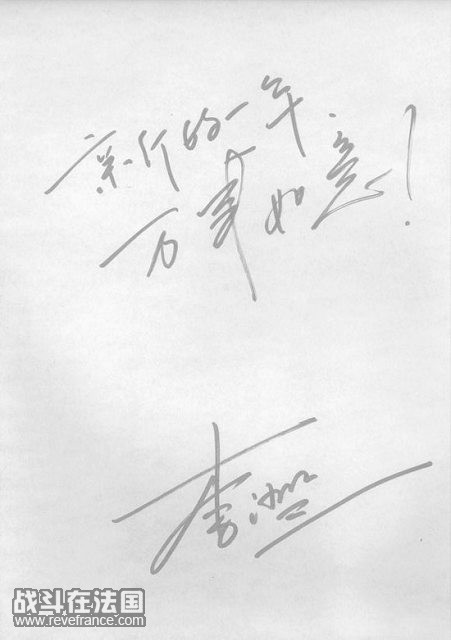 新的一年
万事如意!
李
战斗在法国
www.revefrance.com